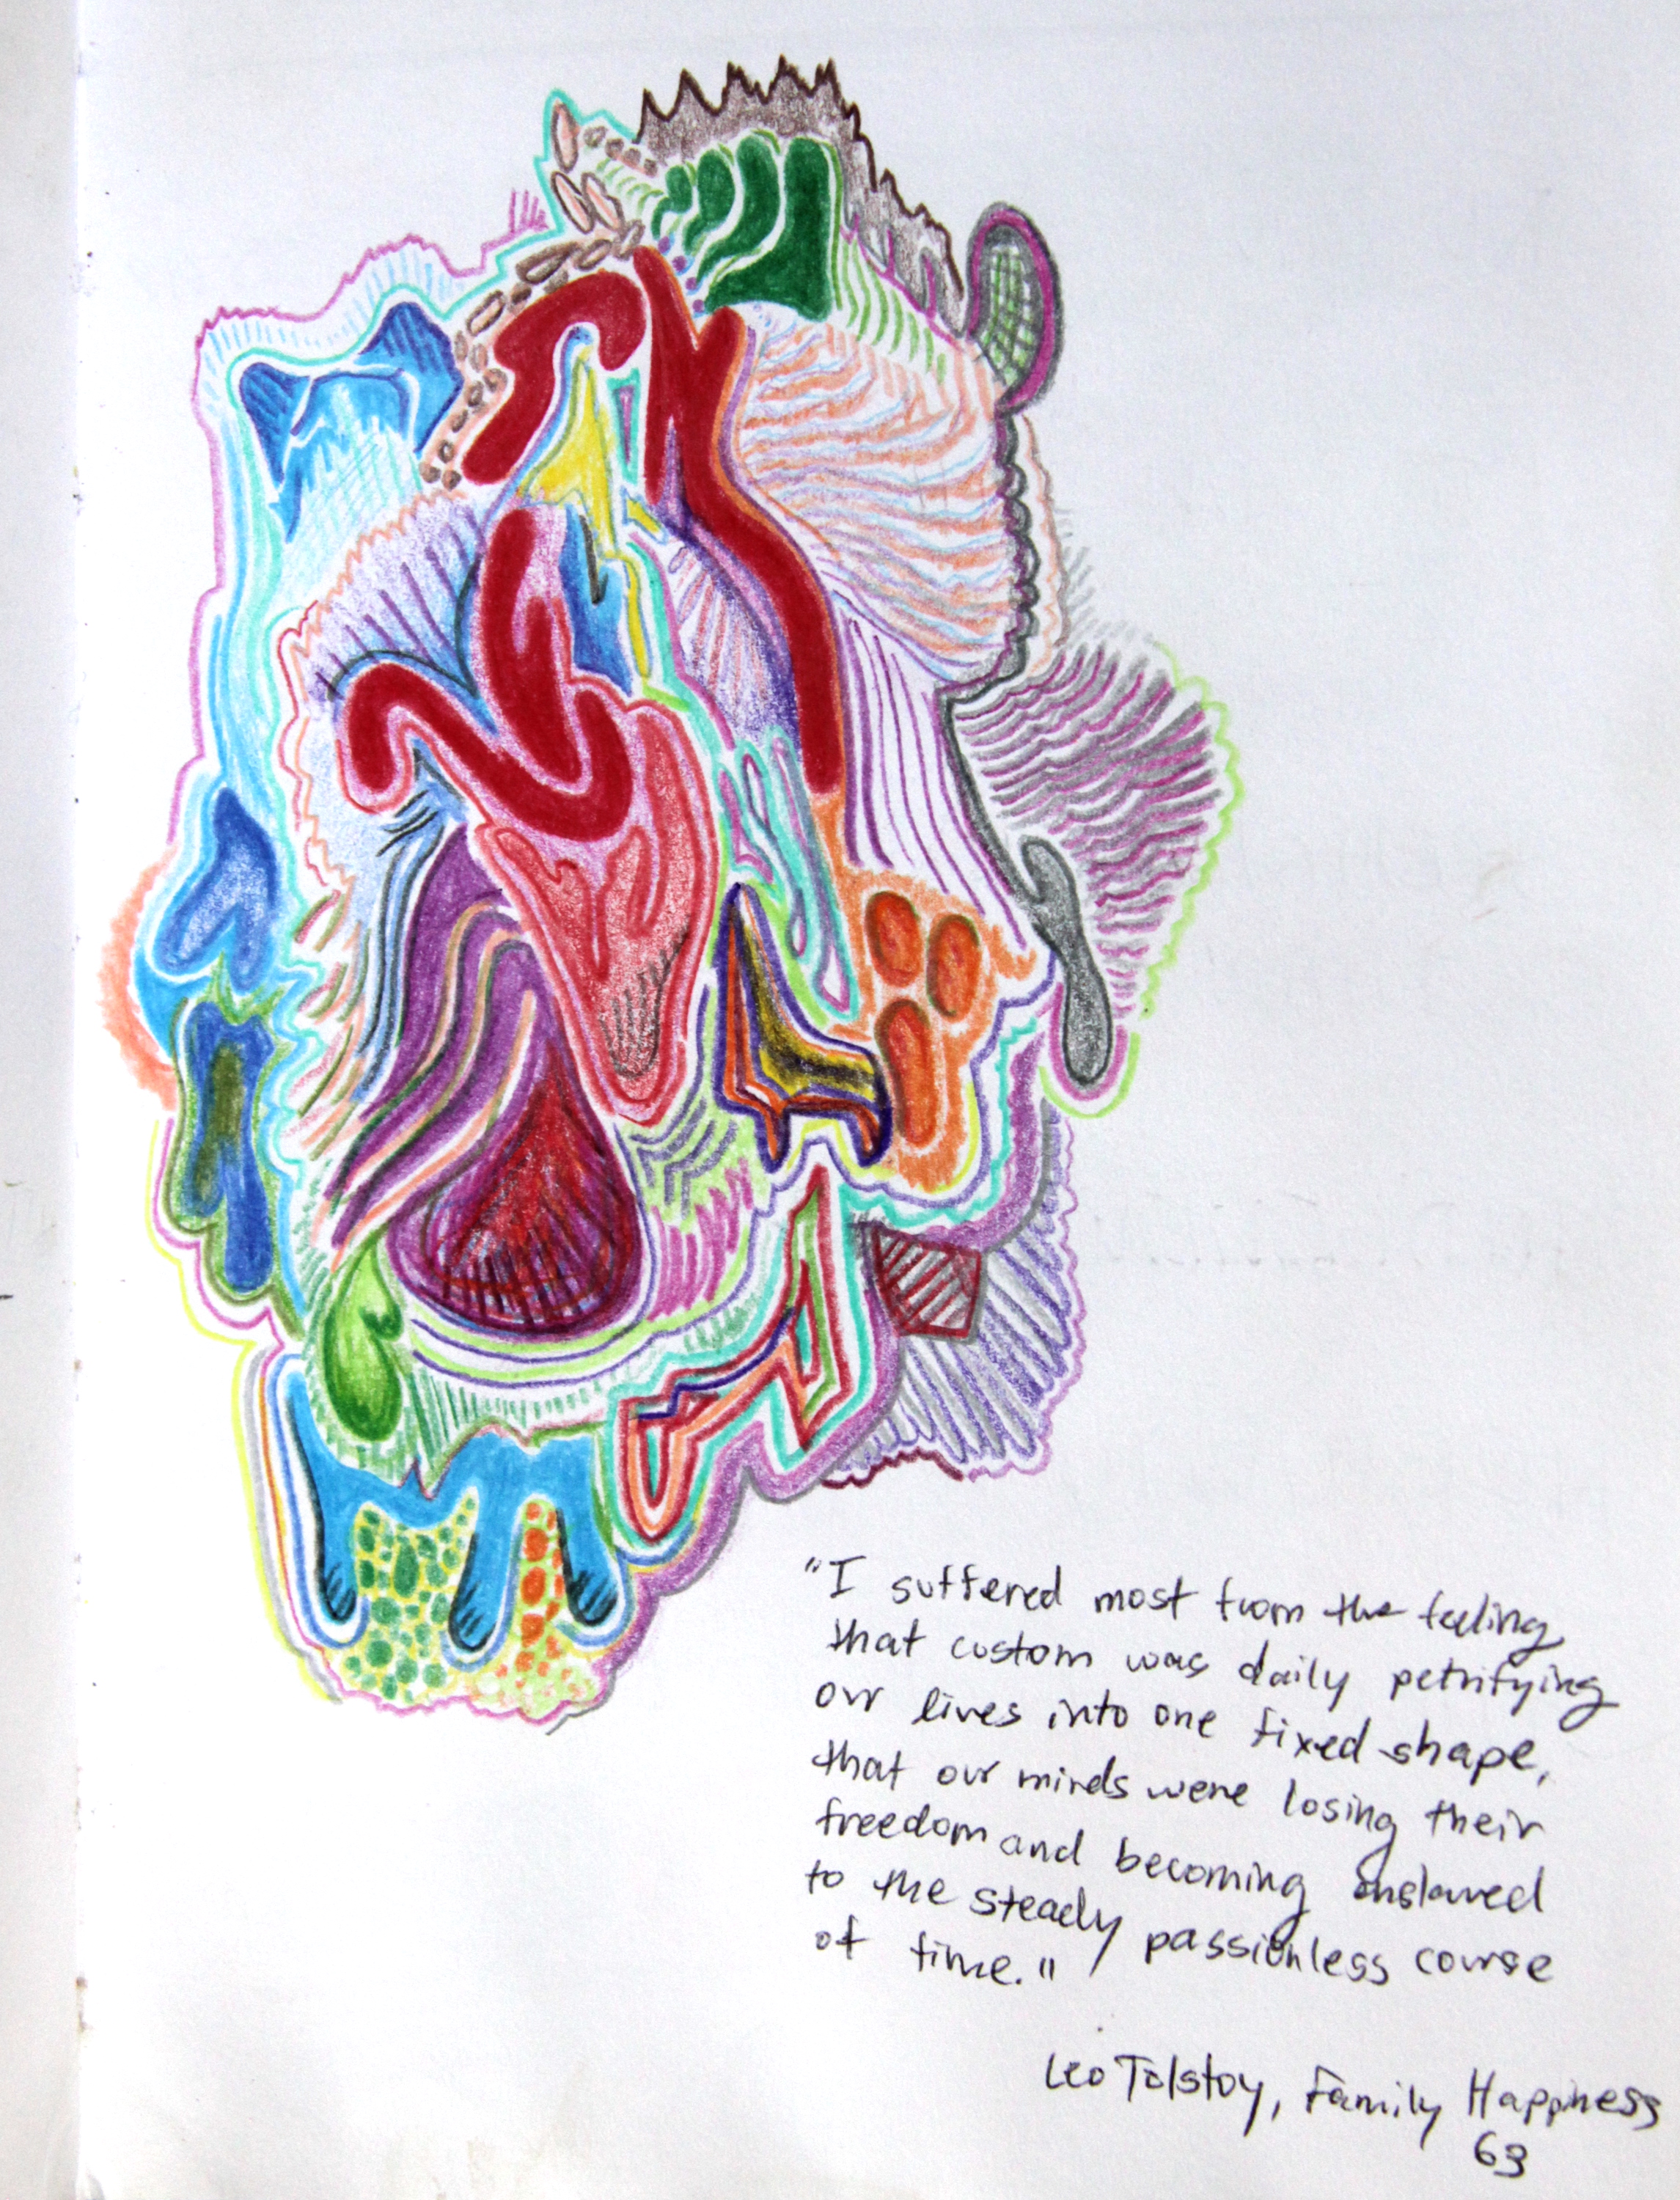 "I suffered most from the feeling
that custom was daily petrifying
our lives into one fixed shape,
that our minds were losing their
freedom and becoming enslaved
to the steady passionless course
of time."
Leo Tolstoy, Family Happiness
63